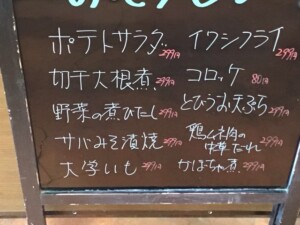 ポテトサラダ 299円
イワシフライ 299円
切干大根煮 299円
コロッケ 80円
野菜の煮びたし 299円
とびうお天ぷら 299円
サバみそ漬焼 299円
鴨ムネ肉の
甘辛だれ 299円
大学いも 299円
かぼちゃ煮 299円